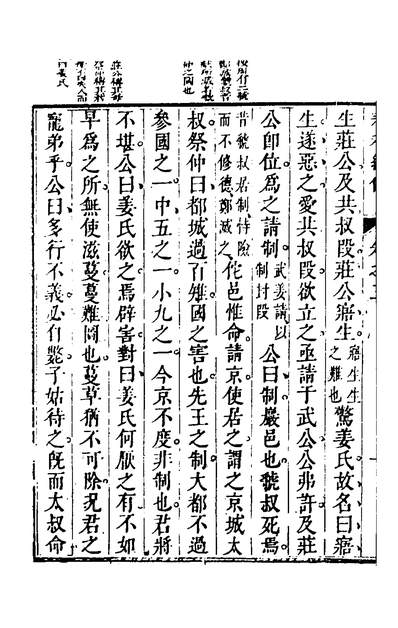 生莊公及共叔段莊公寤生寤生生之難也驚姜氏故名曰寤
生遂惡之愛共叔段欲立之亟請于武公公弗許及莊
公卽位爲之請制武姜請以制封段公曰制巖邑也虢叔死焉
昔虢叔君制恃險而不修德鄭滅之佗邑惟命請京使居之謂之京城太
叔祭仲曰都城過百雉國之害也先王之制大都不過
參國之一中五之一小九之一今京不度非制也君將
不堪公曰姜氏欲之焉辟害對曰姜氏何厭之有不如
早爲之所無使滋蔓蔓難圖也蔓草猶不可除況君之
寵弟乎公曰多行不義必自斃子姑待之旣而太叔命